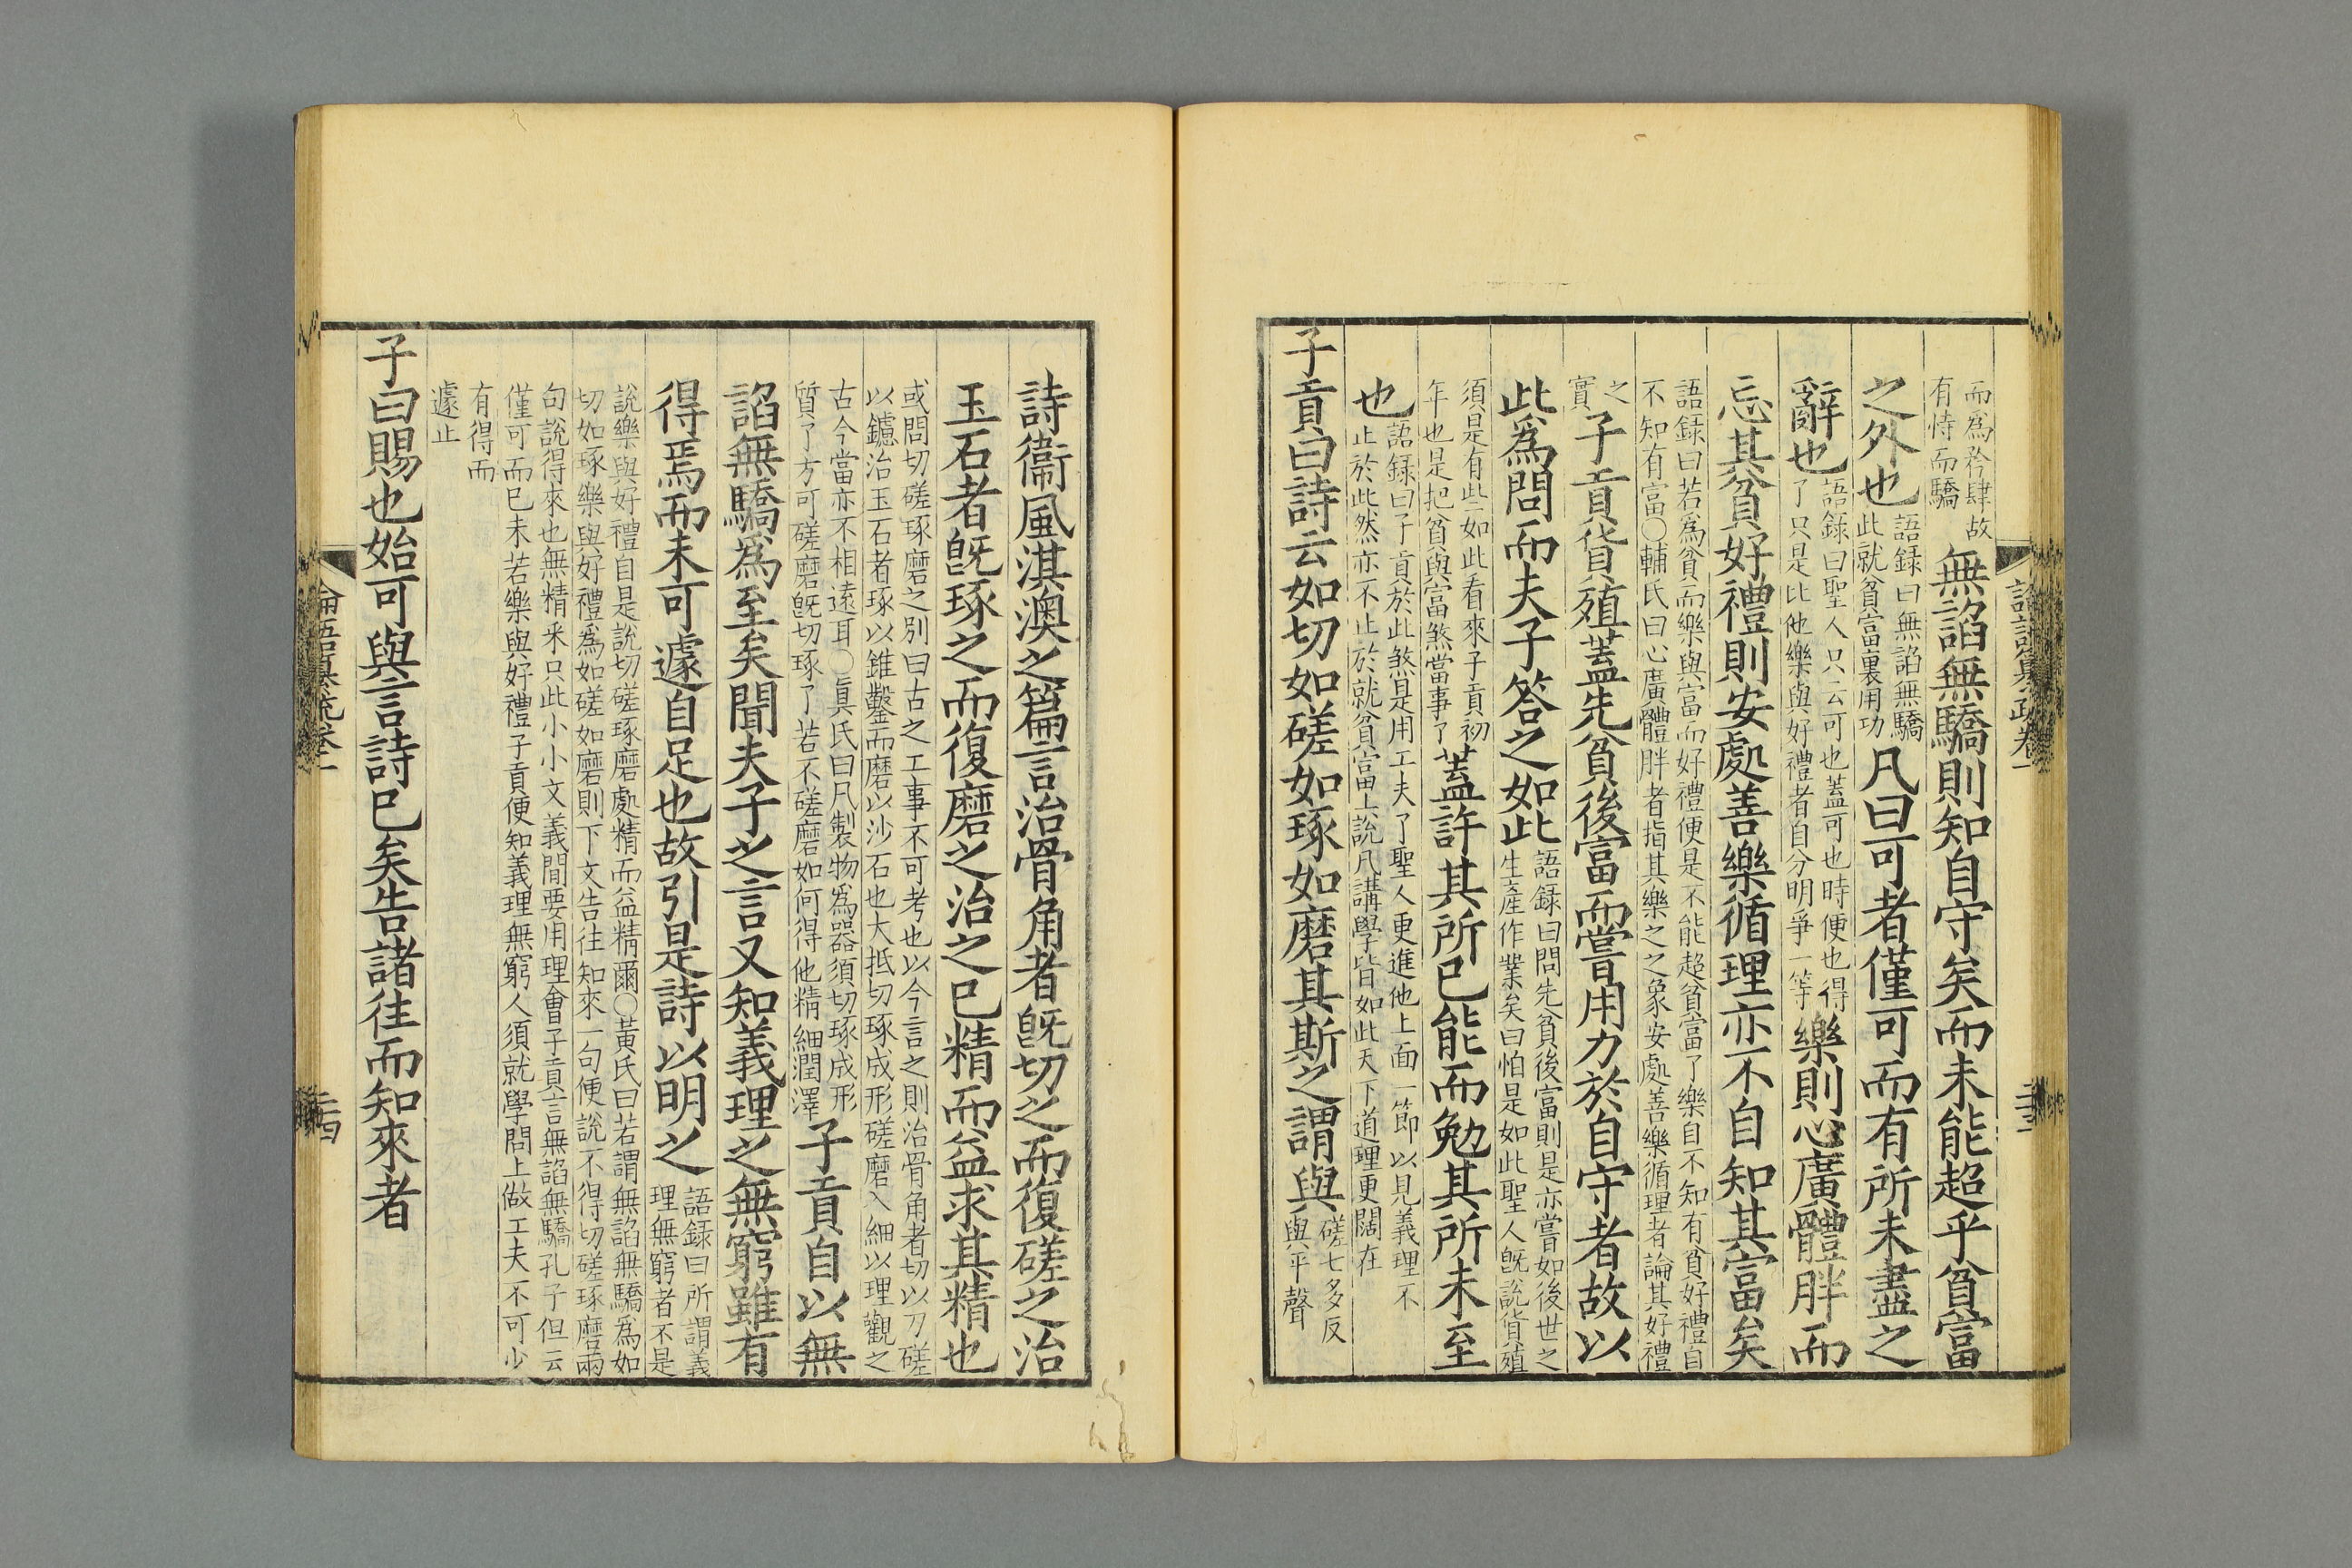 論語纂疏卷一
而爲矜肆故
有恃而驕
無諂無驕則知自守矣而未能超乎貧富
之外也
語録曰無諂無驕
此就貧富裏用功
凡曰可者僅可而有所未盡之
辭也
語録曰聖人只云可也蓋可也時便也得
了只是比他樂與好禮者自分明爭一等
樂則心廣體胖而
忘其貧好禮則安處善樂循理亦不自知其富矣
語録曰若爲貧而樂與富而好禮便是不能超貧富了樂自不知有貧好禮自
不知有富〇輔氏曰心廣體胖者指其樂之之象安處善樂循理者論其好禮
之
實
子貢貨殖蓋先貧後富而嘗用力於自守者故以
此爲問而夫子答之如此
語録曰問先貧後富則是亦嘗如後世之
生產作業矣曰怕是如此聖人旣說貨殖
須是有此一如此看來子貢初
年也是把貧與富煞當事了
蓋許其所已能而勉其所未至
也
語録曰子貢於此煞是用工夫了聖人更進他上面一節以見義理不
止於此然亦不止於就貧富上說凡講學皆如此天下道理更闊在
子貢曰詩云如切如磋如琢如磨其斯之謂與
磋七多反
與平聲
詩衞風淇澳之篇言治骨角者旣切之而復磋之治
玉石者旣琢之而復磨之治之已精而益求其精也
或問切磋琢磨之別曰古之工事不可考也以今言之則治骨角者切以刀磋
以鑢治玉石者琢以錐鑿而磨以沙石也大抵切琢成形磋磨入細以理觀之
古今當亦不相遠耳〇眞氏曰凡製物爲器須切琢成形
質了方可磋磨旣切琢了若不磋磨如何得他精細潤澤
子貢自以無
諂無驕爲至矣聞夫子之言又知義理之無窮雖有
得焉而未可遽自足也故引是詩以明之
語録曰所謂義
理無窮者不是
說樂與好禮自是說切磋琢磨處精而益精爾〇黃氏曰若謂無諂無驕爲如
切如琢樂與好禮爲如磋如磨則下文告往知來一句便說不得切磋琢磨兩
句說得來也無精釆只此小小文義間要用理會子貢言無諂無驕孔子但云
僅可而已未若樂與好禮子貢便知義理無窮人須就學問上做工夫不可少
有得而
遽止
子曰賜也始可與言詩已矣告諸往而知來者
論語纂疏卷一
二十四